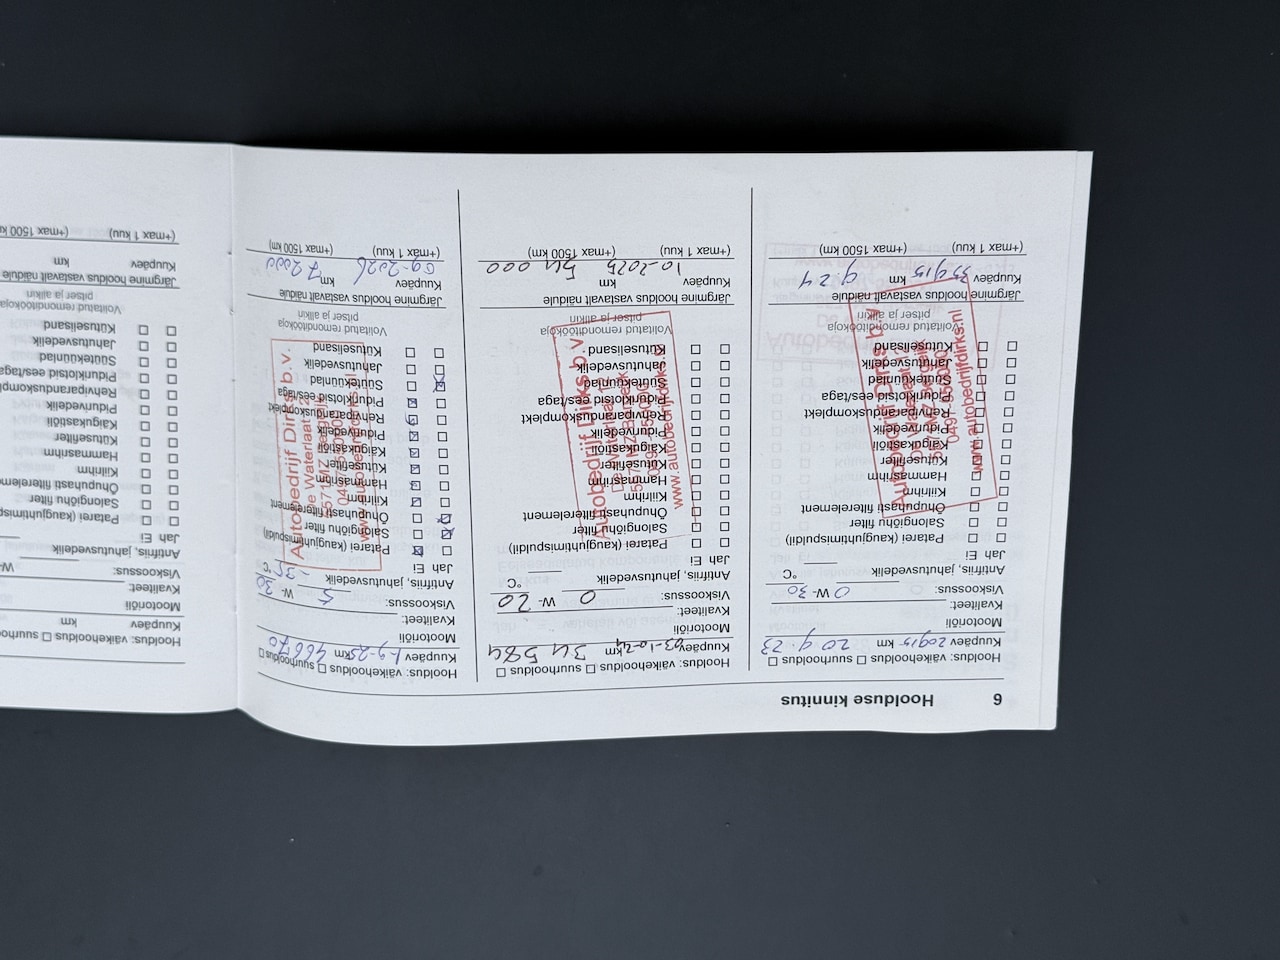 6 Hoolduse kinnitus
Hooldus: väikehooldus ☐ suurhooldus ☐
Kuupäev 20915 km 20 9.23
Mootoriõli
Kvaliteet:
Viskoossus: 0 W- 30
Antifriis, jahutusvedelik °C
Jah Ei
Patarei (kaugjuhtimispuldil)
Salongiõhu filter
Õhupuhasti filterelement
Kiilrihm
Hammasrihm
Kütusefilter
Käigukastiõli
Pidurivedelik
Rehviparanduskomplekt
Piduriklotsid ees/taga
Süüteküünlad
Jahutusvedelik
Kütuselisand
Volitatud remonditöökoja
pitser ja allkiri
Autobedrijf Dirks b.v.
www.autobedrijfdirks.nl
Järgmine hooldus vastavalt näidule
Kuupäev 35915 km 9.24
(+max 1 kuu) (+max 1500 km)
Hooldus: väikehooldus ☐ suurhooldus ☐
Kuupäev 03-10-24 km 34 584
Mootoriõli
Kvaliteet:
Viskoossus: 0 W- 20
Antifriis, jahutusvedelik °C
Jah Ei
Patarei (kaugjuhtimispuldil)
Salongiõhu filter
Õhupuhasti filterelement
Kiilrihm
Hammasrihm
Kütusefilter
Käigukastiõli
Pidurivedelik
Rehviparanduskomplekt
Piduriklotsid ees/taga
Süüteküünlad
Jahutusvedelik
Kütuselisand
Volitatud remonditöökoja
pitser ja allkiri
Autobedrijf Dirks b.v.
www.autobedrijfdirks.nl
Järgmine hooldus vastavalt näidule
Kuupäev 10-2025 km 54 000
(+max 1 kuu) (+max 1500 km)
Hooldus: väikehooldus ☐ suurhooldus ☐
Kuupäev 1-9-25 km 46670
Mootoriõli
Kvaliteet:
Viskoossus: 5 W- 30
Antifriis, jahutusvedelik -35 °C
Jah Ei
Patarei (kaugjuhtimispuldil)
Salongiõhu filter
Õhupuhasti filterelement
Kiilrihm
Hammasrihm
Kütusefilter
Käigukastiõli
Pidurivedelik
Rehviparanduskomplekt
Piduriklotsid ees/taga
Süüteküünlad
Jahutusvedelik
Kütuselisand
Volitatud remonditöökoja
pitser ja allkiri
Autobedrijf Dirks b.v.
Järgmine hooldus vastavalt näidule
Kuupäev 09-2026 km 72000
(+max 1 kuu) (+max 1500 km)
Hooldus: väikehooldus ☐
Kuupäev km
Mootoriõli
Kvaliteet:
Viskoossus: W-
Antifriis, jahutusvedelik
Jah Ei
Salongiõhu filter
Kiilrihm
Hammasrihm
Kütusefilter
Käigukastiõli
Pidurivedelik
Süüteküünlad
Jahutusvedelik
Kütuselisand
Volitatud remonditöökoja
pitser ja allkiri
Järgmine hooldus vastavalt näidule
Kuupäev km
(+max 1 kuu) (+max 1500 km)